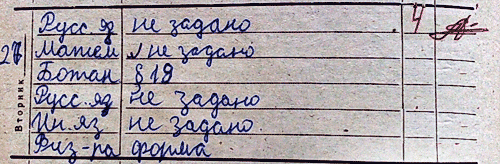 Русс. яз не задано 4
Матем не задано
Ботан § 19
Русс. яз не задано
Ин. яз не задано
Физ-ра форма
Вторник